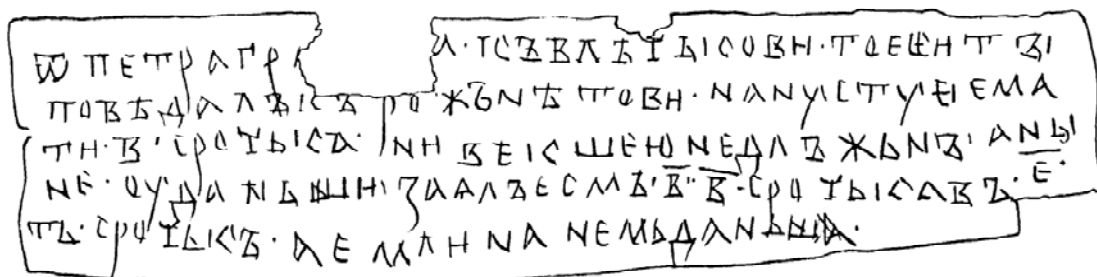 Ѿ петрагр а·къвлътькови·тоеситꙑ
повѣдалъкъ ро·жьнѣ тови·нанустуеѥма
ти·в·сротька· ни векшеюнедлъжьнъ·анꙑ
не·оуданьши·заалъесмь·в҃·в҃·сротькавъ·е҃·
ть·сротькъ·аемлинанемьданьша·